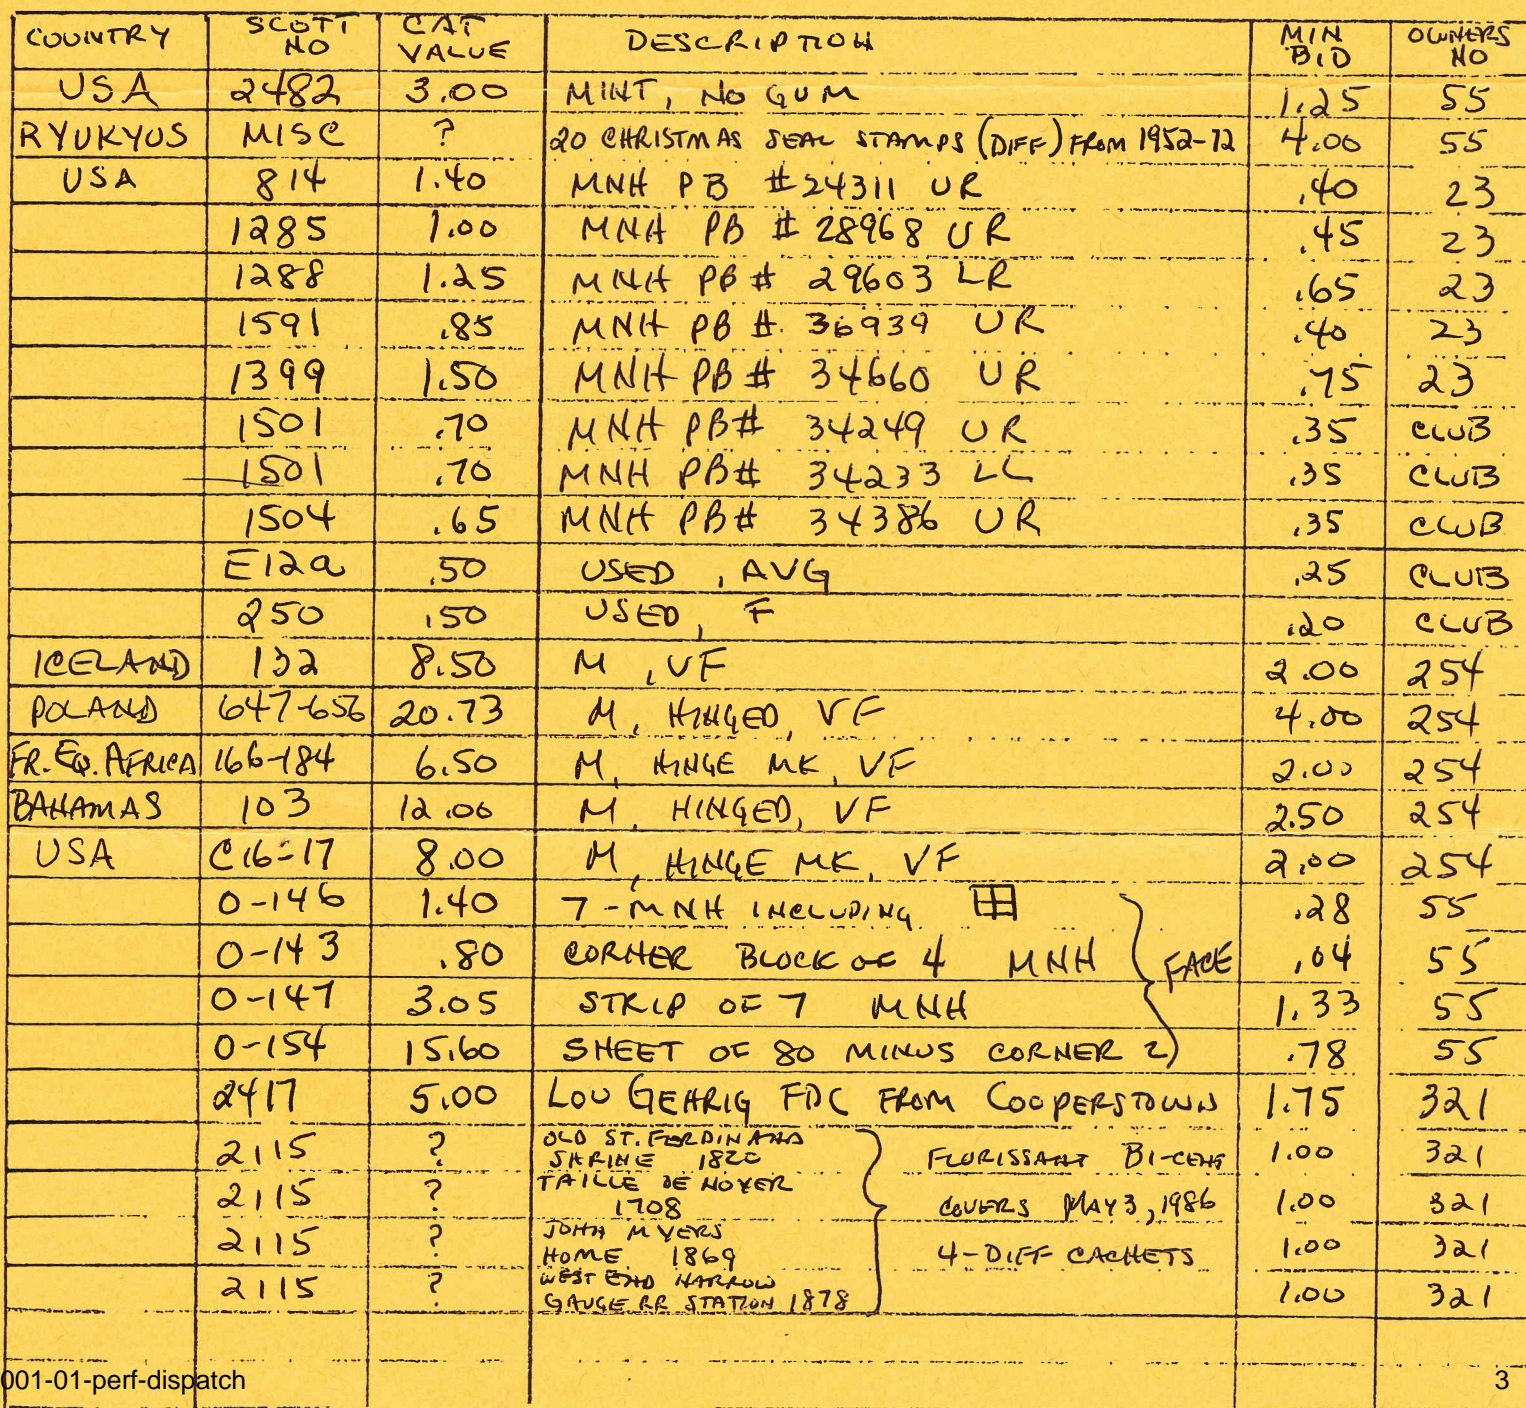 COUNTRY SCOTT NO CAT VALUE DESCRIPTION MIN BID OWNERS NO
USA 2482 3.00 MINT, NO GUM 1.25 55
RYUKYUS MISC ? 20 CHRISTMAS SEAL STAMPS (DIFF) FROM 1952-72 4.00 55
USA 814 1.40 MNH PB #24311 UR .40 23
1285 1.00 MNH PB # 28968 UR .45 23
1288 1.25 MNH PB # 29603 LR .65 23
1591 .85 MNH PB #. 36939 UR .40 23
1399 1.50 MNH PB # 34660 UR .75 23
1501 .70 MNH PB# 34249 UR .35 CLUB
1501 .70 MNH PB# 34233 LL .35 CLUB
1504 .65 MNH PB# 34386 UR .35 CLUB
E12a .50 USED, AVG .25 CLUB
250 .50 USED, F .20 CLUB
ICELAND 132 8.50 M, VF 2.00 254
POLAND 647-656 20.73 M, HINGED, VF 4.00 254
FR. EQ. AFRICA 166-184 6.50 M, HINGE MK, VF 2.00 254
BAHAMAS 103 12.00 M, HINGED, VF 2.50 254
USA C16-17 8.00 M, HINGE MK, VF 2.00 254
O-146 1.40 7-MNH INCLUDING .28 55
O-143 .80 CORNER BLOCK OF 4 MNH FACE .04 55
O-147 3.05 STRIP OF 7 MNH 1.33 55
O-154 15.60 SHEET OF 80 MINUS CORNER 2 .78 55
2417 5.00 LOU GEHRIG FDC FROM COOPERSTOWN 1.75 321
2115 ? OLD ST. FERDINAND SHRINE 1820 FLORISSANT BI-CENT 1.00 321
2115 ? TAILLE DE NOYER 1708 COVERS MAY 3, 1986 1.00 321
2115 ? JOHN MYERS HOME 1869 4-DIFF CACHETS 1.00 321
2115 ? WEST END NARROW GAUGE RR STATION 1878 1.00 321
001-01-perf-dispatch 3